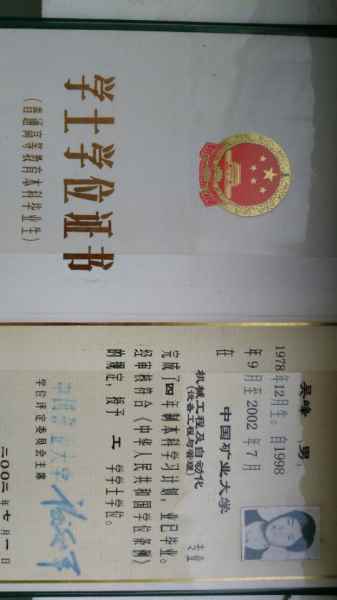 学士学位证书
(普通高等教育本科毕业生)
吴峰 男,
1978年12月生。自1998
年9月至2002年7月
在 中国矿业大学
机械工程及自动化
(设备工程与管理) 专业
完成了四年制本科学习计划,业已毕业。
经审核符合《中华人民共和国学位条例》
的规定,授予 工 学学士学位。
学位评定委员会主席
二〇〇二年七月一日